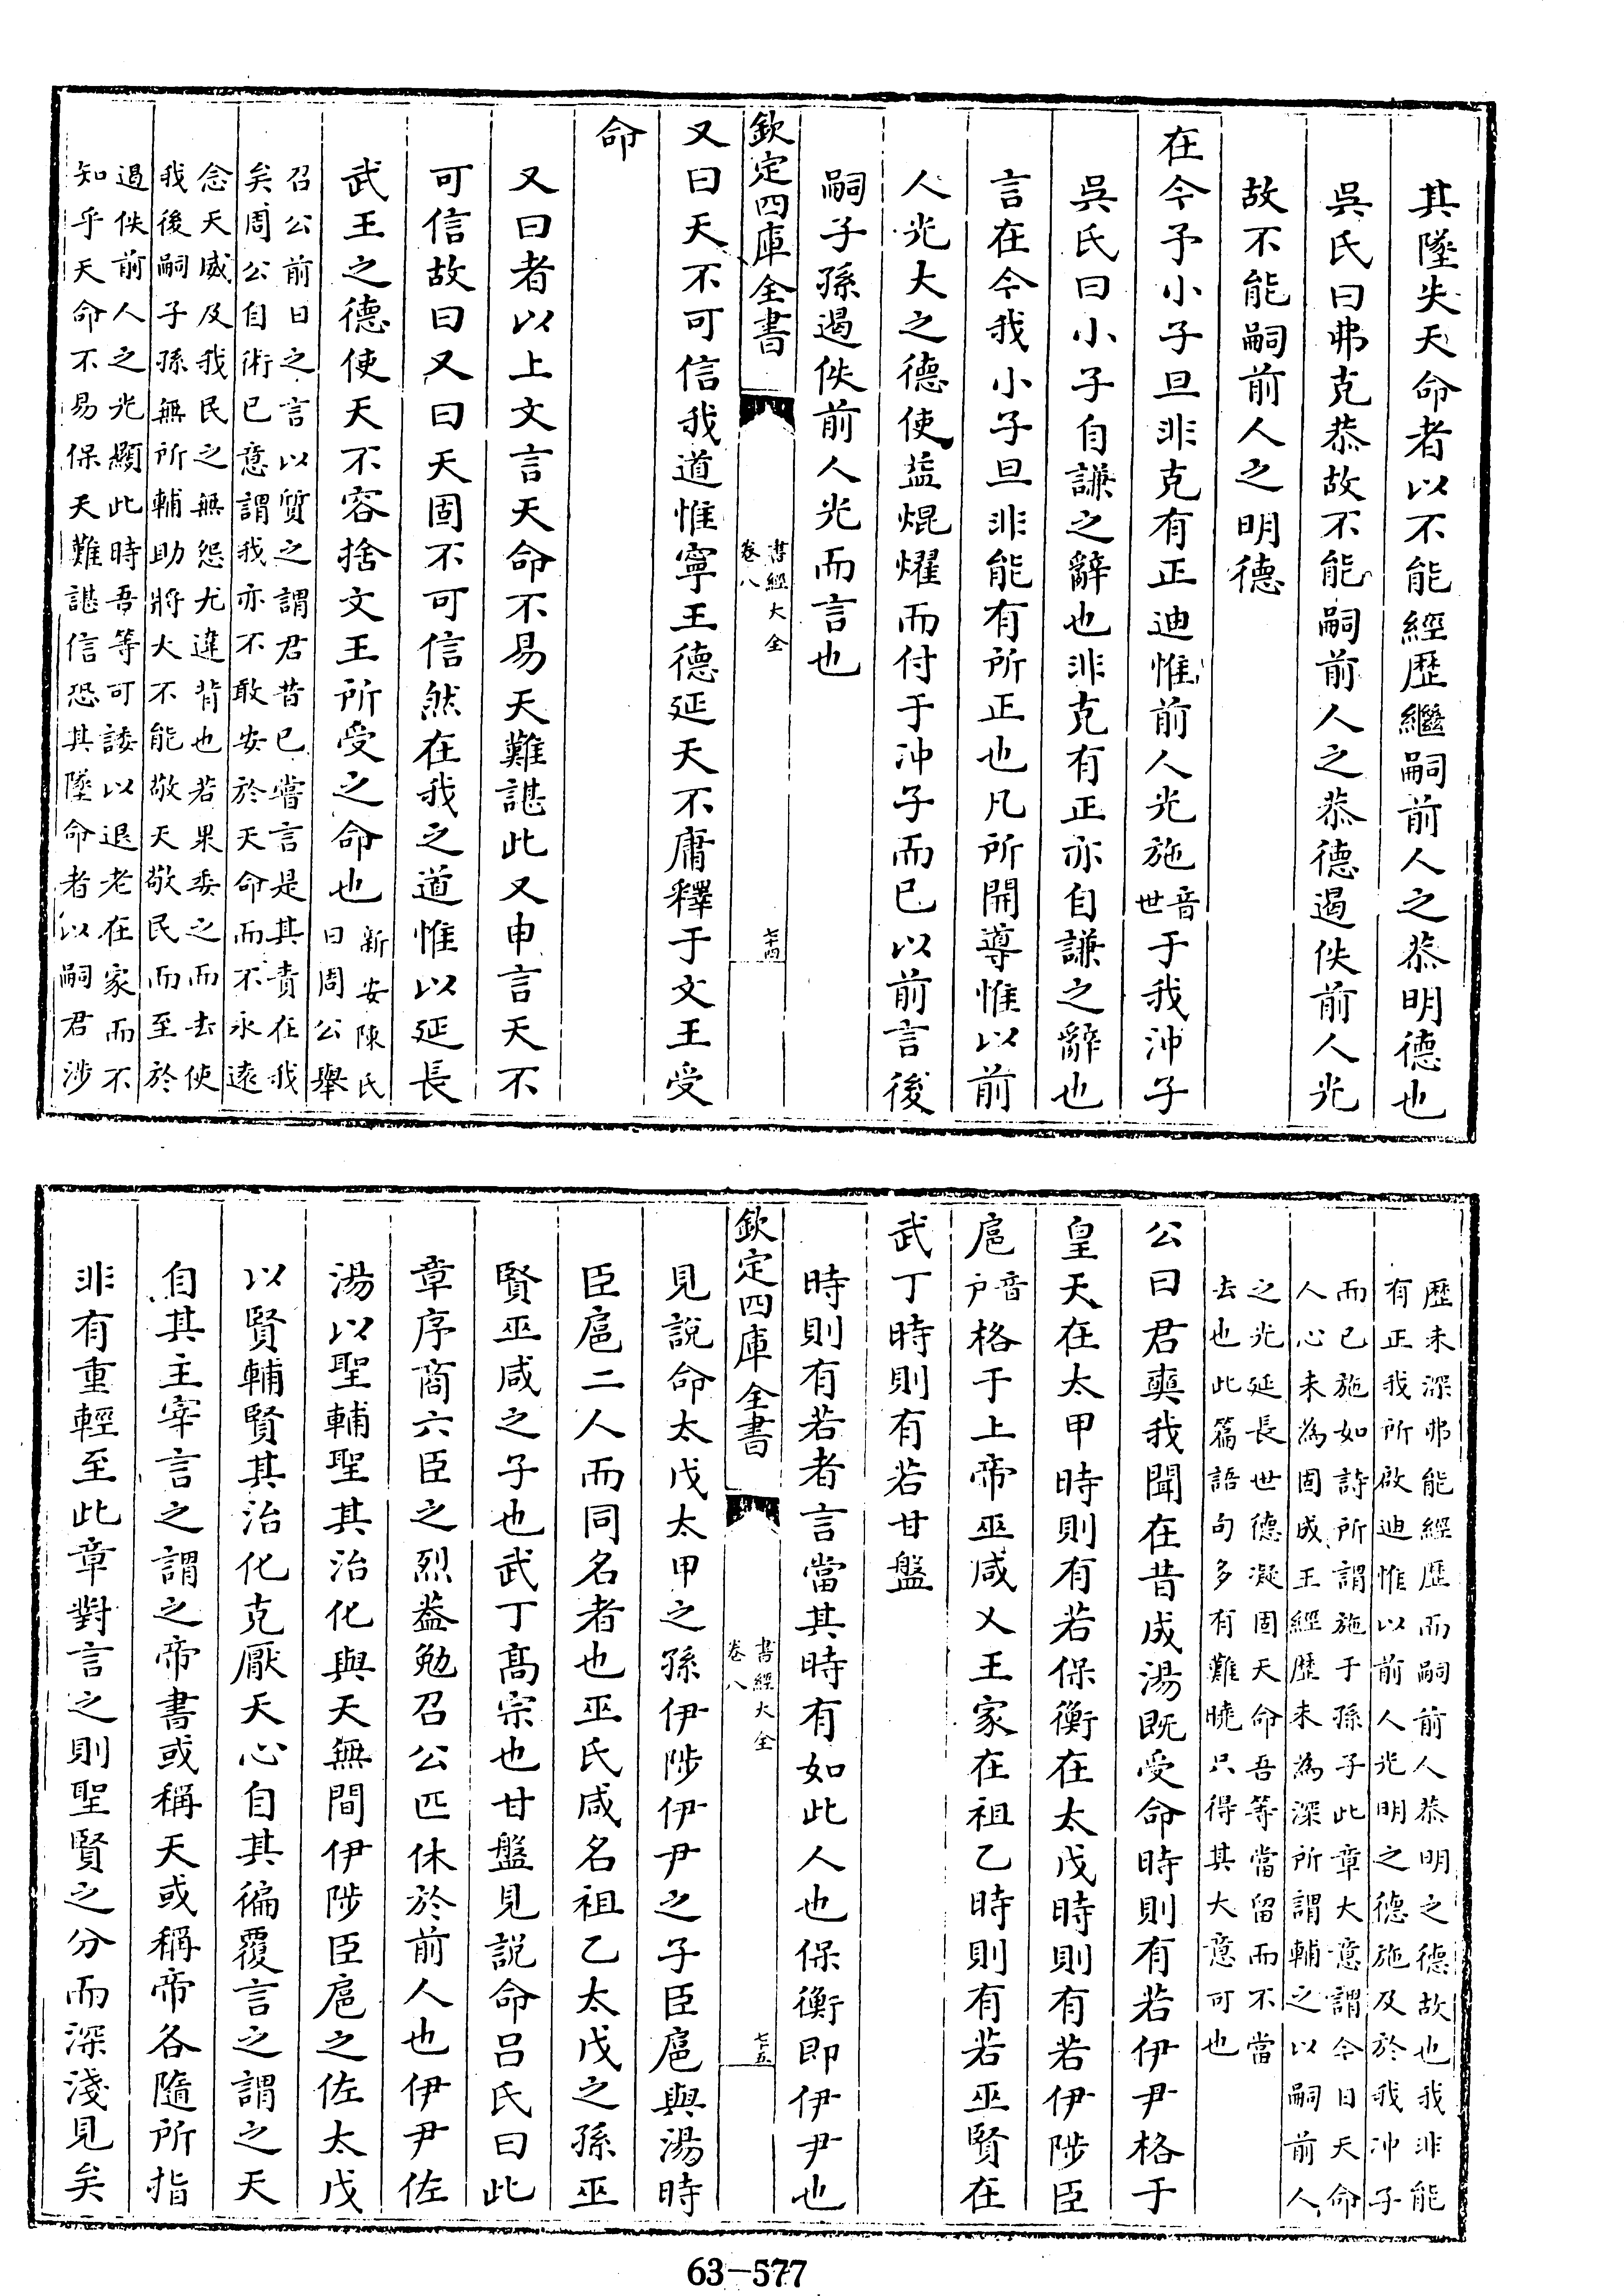 其墜失天命者以不能經歷繼嗣前人之恭明德也
吳氏曰弗克恭故不能嗣前人之恭德遏佚前人光
故不能嗣前人之明德
在今予小子旦非克有正迪惟前人光施音世于我沖子
吳氏曰小子自謙之辭也非克有正亦自謙之辭也
言在今我小子旦非能有所正也凡所開導惟以前
人光大之德使益焜燿而付于沖子而已以前言後
嗣子孫遏佚前人光而言也
欽定四庫全書
書經大全
卷八
七十四
又曰天不可信我道惟寧王德延天不庸釋于文王受
命
又曰者以上文言天命不易天難諶此又申言天不
可信故曰又曰天固不可信然在我之道惟以延長
武王之德使天不容捨文王所受之命也
新安陳氏
曰周公舉
召公前日之言以質之謂君昔已嘗言是其責在我
矣周公自術已意謂我亦不敢安於天命而不永遠
念天威及我民之無怨尤違背也若果委之而去使
我後嗣子孫無所輔助將大不能敬天敬民而至於
遏佚前人之光顯此時吾等可諉以退老在家而不
知乎天命不易保天難諶信恐其墜命者以嗣君涉
歷未深弗能經歷而嗣前人恭明之德故也我非能
有正我所啟迪惟以前人光明之德施及於我沖子
而已施如詩所謂施于孫子此章大意謂今日天命
人心未為固成王經歷未為深所謂輔之以嗣前人
之光延長世德凝固天命吾等當留而不當
去也此篇語句多有難曉只得其大意可也
公曰君奭我聞在昔成湯既受命時則有若伊尹格于
皇天在太甲時則有若保衡在太戊時則有若伊陟臣
扈音户格于上帝巫咸乂王家在祖乙時則有若巫賢在
武丁時則有若甘盤
時則有若者言當其時有如此人也保衡即伊尹也
欽定四庫全書
書經大全
卷八
七十五
見說命太戊太甲之孫伊陟伊尹之子臣扈與湯時
臣扈二人而同名者也巫氏咸名祖乙太戊之孫巫
賢巫咸之子也武丁髙宗也甘盤見說命呂氏曰此
章序商六臣之烈葢勉召公匹休於前人也伊尹佐
湯以聖輔聖其治化與天無間伊陟臣扈之佐太戊
以賢輔賢其治化克厭天心自其徧覆言之謂之天
自其主宰言之謂之帝書或稱天或稱帝各隨所指
非有重輕至此章對言之則聖賢之分而深淺見矣
63-577